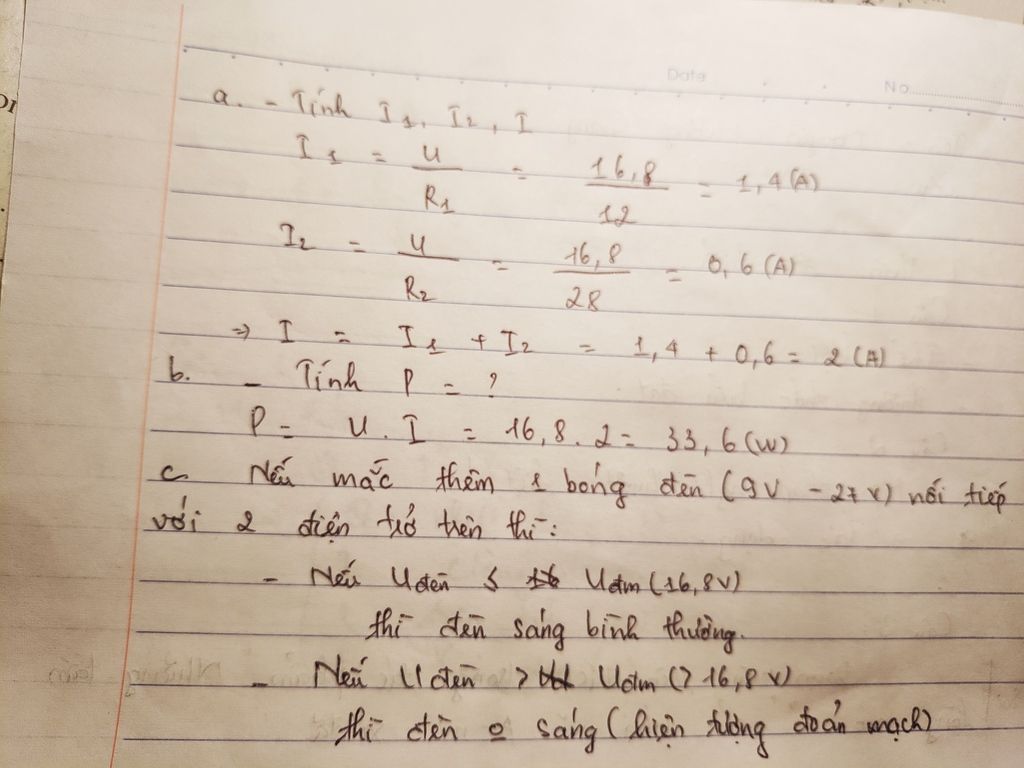 Date No
a. - Tính I1, I2, I
I1 = U/R1 = 16,8/12 = 1,4 (A)
I2 = U/R2 = 16,8/28 = 0,6 (A)
=> I = I1 + I2 = 1,4 + 0,6 = 2 (A)
b. - Tính P = ?
P = U. I = 16,8. 2 = 33,6 (W)
c Nếu mắc thêm 1 bóng đèn (9V - 27V) nối tiếp
với 2 điện trở trên thì:
- Nếu Uđèn ≤ Uđm (16,8V)
thì đèn sáng bình thường.
- Nếu Uđèn > Uđm (> 16,8V)
thì đèn o sáng (hiện tượng đoản mạch)